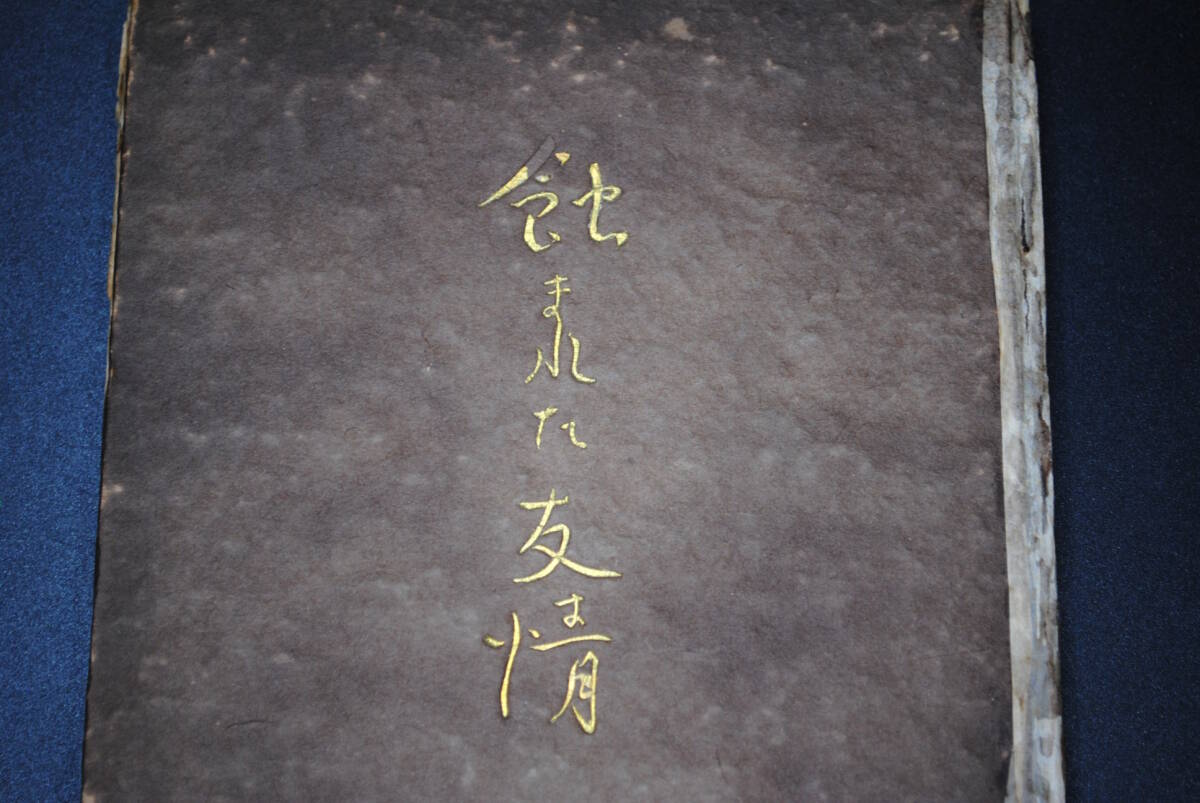 蝕まれた友情